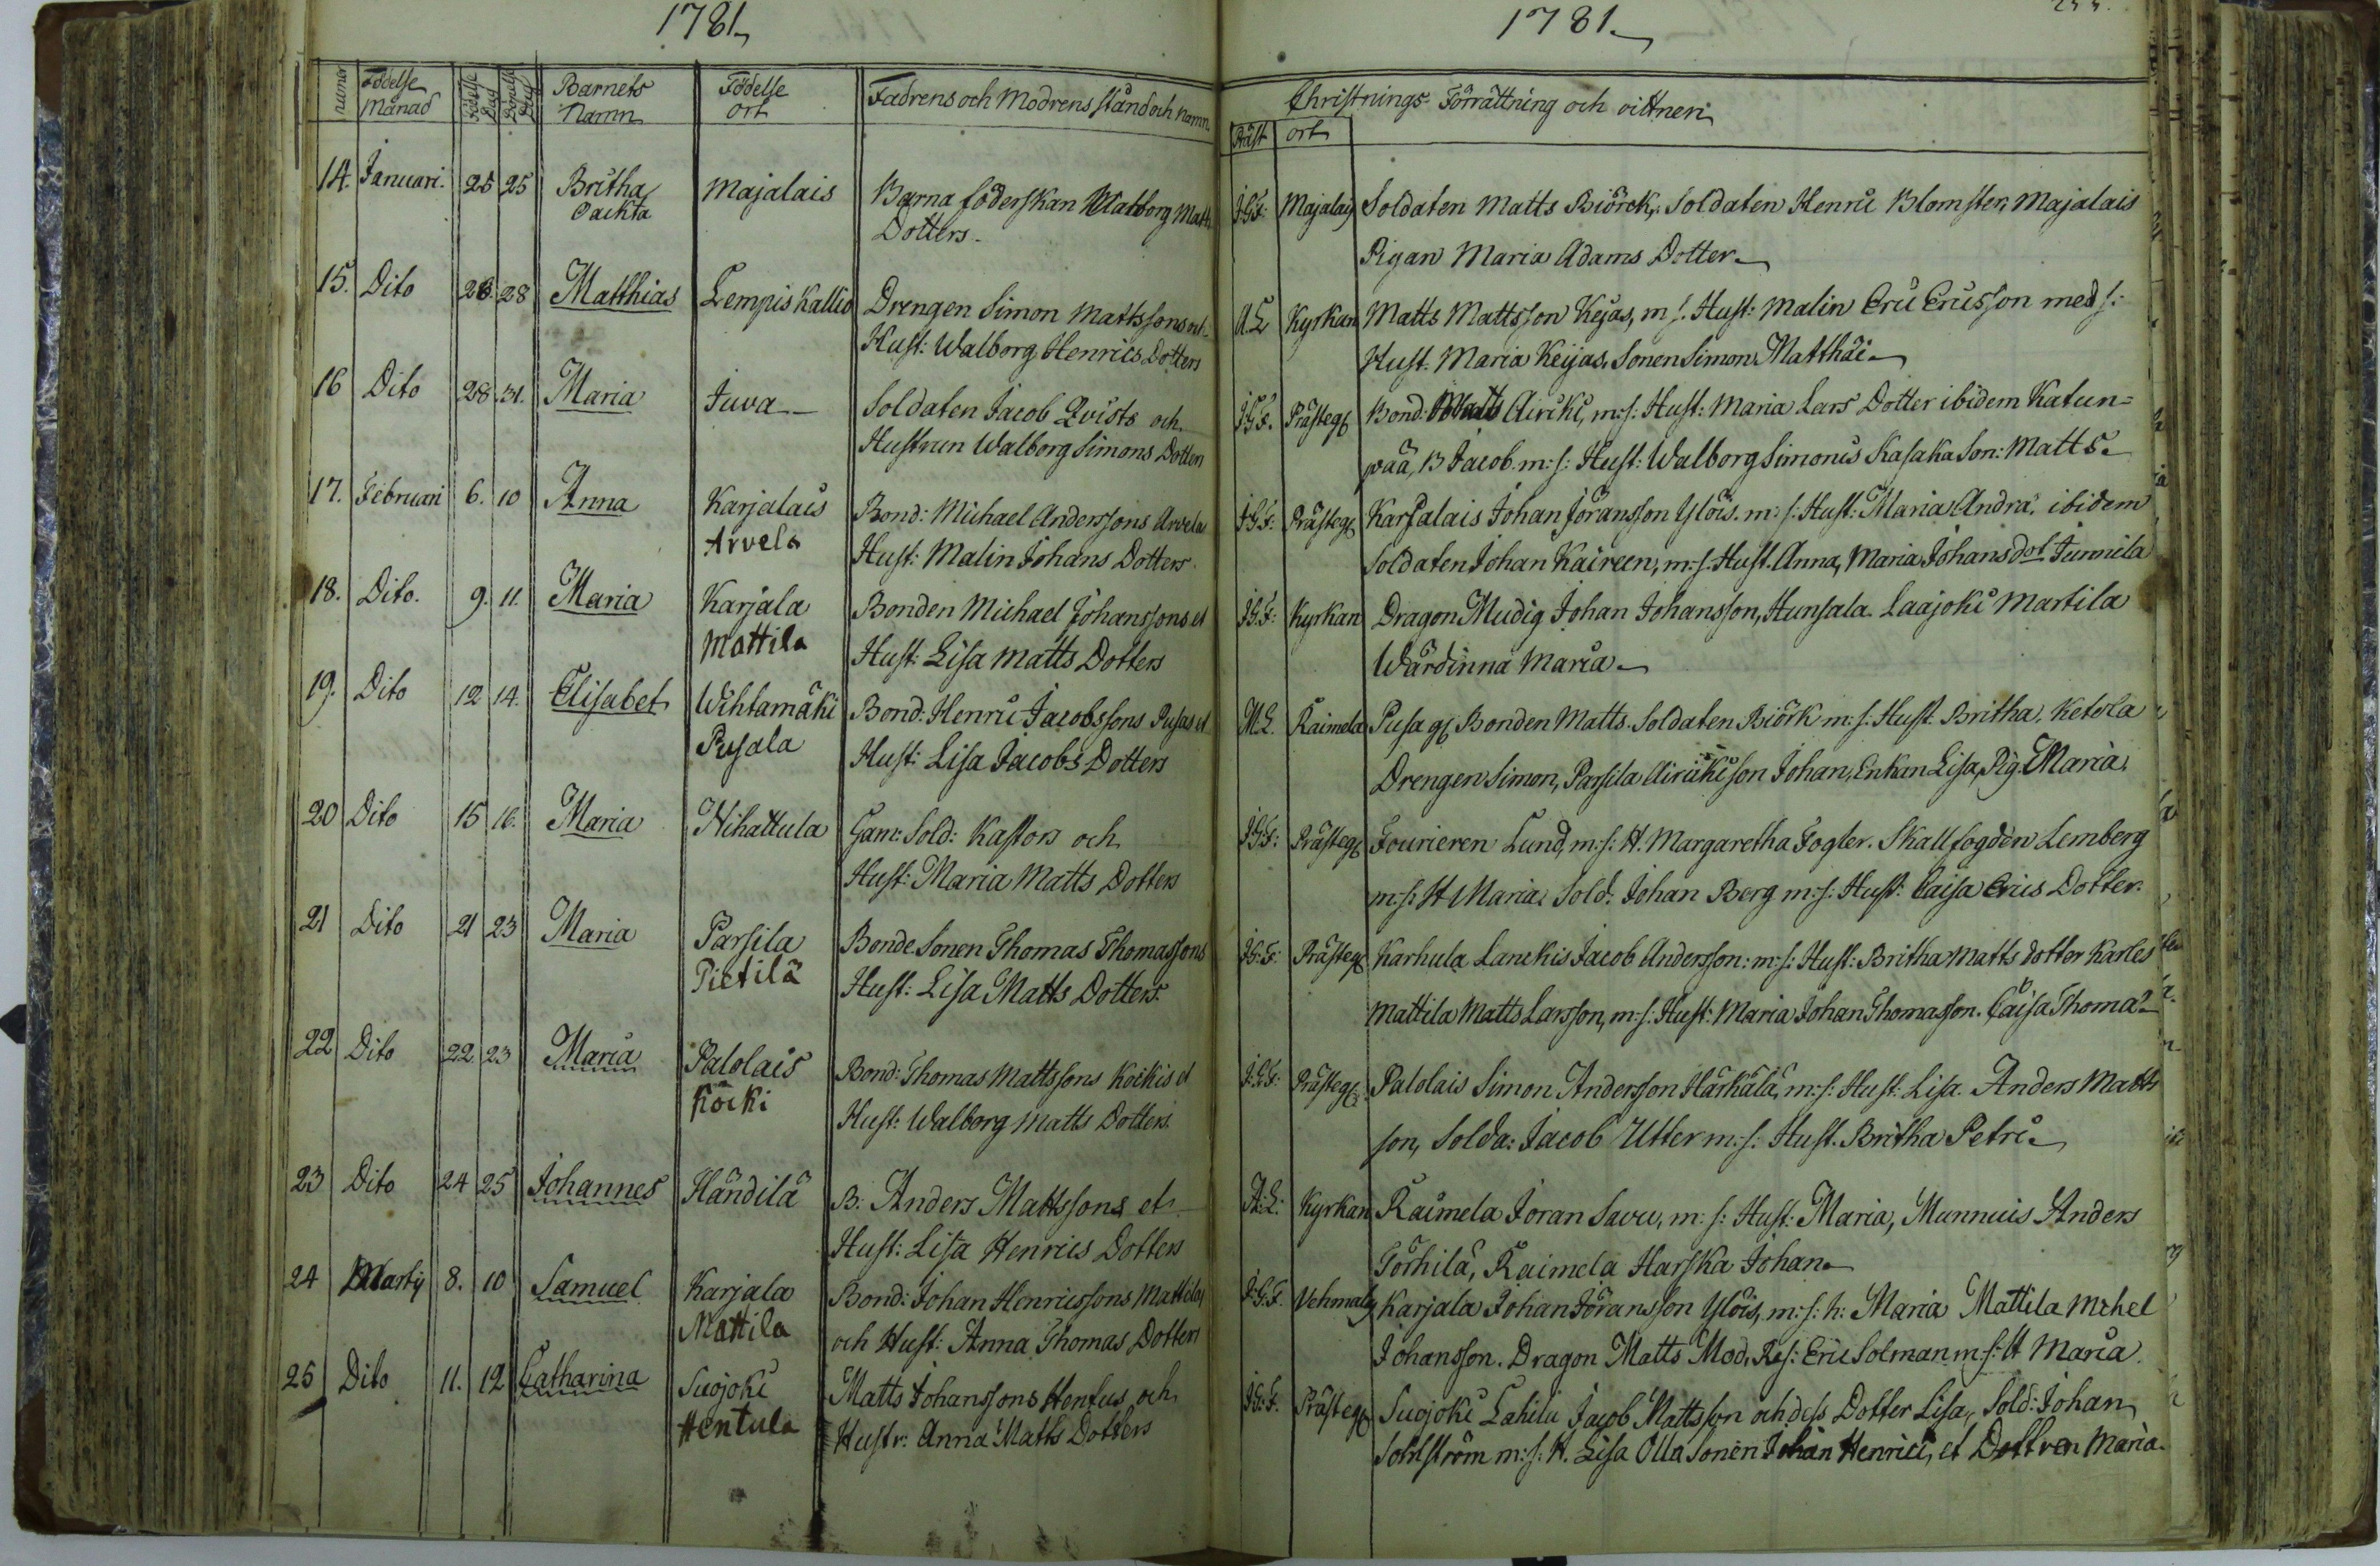 1781
numer Födelse Månad Födelse Dag Barnets Namn Födelse ort Fadrens och Modrens stånd och Namn
14. Januari. 25 25 Britha Majalais Barna föderskan Walborg Matts
Oächta Dotters.
15. Dito 26. 28 Matthias Lempis Kallio Drengen Simon Mattssons och
Hust: Walborg Henrics Dotters
16 Dito 28 31. Maria Juva Soldaten Jacob Qvists och
Hustrun Walborg Simons Dotters
17. Februari 6. 10 Anna Karjalais Bond: Michael Anderssons Arvelas
Arvela Hust: Malin Johans Dotters.
18. Dito. 9. 11. Maria Karjala Bonden Michael Johanssons et
Mattila Hust: Lisa Matts Dotters
19. Dito 12 14. Elisabet Wihtamäki Bond: Henric Jacobssons Pusas et
Pusala Hust: Lisa Jacobs Dotters
20 Dito 15 16. Maria Nihattula Gam: Sold: Kastors och
Hust: Maria Matts Dotters
21 Dito 21 23 Maria Parsila Bonde Sonen Thomas Thomassons
Pietilä Hust: Lisa Matts Dotters.
22 Dito 22 23 Maria Palolais Bond: Thomas Mattssons Köikis et
Köiki Hust: Walborg Matts Dotters.
23 Dito 24 25 Johannes Händilä B: Anders Mattssons et
Hust: Lisa Henrics Dotters
24 Martij 8. 10 Samuel Karjala Bond: Johan Henricssons Mattilas
Mattila och Hust: Anna Thomas Dotters
25 Dito 11. 12 Catharina Suojoki Matts Johanssons Hentus och
Hentula Hustr: Anna Matts Dotters
1781
Christnings Förrättning och vittnen
Präst ort
J.G.F: Majalais Soldaten Matts Biörck, Soldaten Henric Blomster, Majalais
Pigan Maria Adams Dotter
A.L Kyrkan Matts Mattsson Kejas, m.s. Hust: Malin Eric Ericsson med s:
Hust. Maria Keijas. Sonen Simon Matthäi
J.G.F. Prästeg: Bond: Matts Airiki, m:s: Hust: Maria Lars Dotter ibidem Katun=
pää, B Jacob. m:s: Hust: Walborg Simonis Kasaka Son: Matts
J.G.F: Prästeg: Karjalais Johan Jöransson Ylöis. m:s: Hust: Maria Andræ ibidem
Soldaten Johan Kaireen, m:s. Hust. Anna, Maria Johans dot. Junnila
J.G.F: Kyrkan Dragon Mudig Johan Johansson, Hunsala. Laajoki Martila
Wärdinna Maria
M.L. Raimela Pusa Bonden Matts. Soldaten Biörk m:s: Hust. Britha. Ketola
Drengen Simon, Parsila Airikis son Johan, Enkan Lisa, Pig. Maria.
J.G.F: Prästeg: Fourieren Lund, m:s: H. Margaretha Fogler. Skallfogden Lemberg
m:s: H Maria, Sold: Johan Berg m:s: Hust: Caisa Erics Dotter.
J.G.F: Prästeg: Karhula Lanckis Jacob Andersson: m:s: Hust: Britha Matts dotter Karles
Mattila Matts Larsson, m:s: Hust: Maria Johan Thomasson. Caisa Thomæ
J.G.F: Prästeg: Palolais Simon Andersson Härkälä, m:s: Hust. Lisa. Anders Matts
son, Solda: Jacob Utter m:s: Hust. Britha Petri
A:L: Kyrkan Raimela Joran Savu, m:s: Hust: Maria, Munnuis Anders
Törhilä, Raimela Harska Johan
J.G.F. Vehmalais Karjala Johan Jöransson Ylöis, m:s: h: Maria Mattila Mickel
Johansson. Dragon Matts Mod, Res: Eric Solman m:s: H Maria.
J.G.F. Prästeg: Suojoki Lahila Jacob Mattsson och dess Dotter Lisa, Sold: Johan
m:s: H. Lisa Olla Sonen Johan Henrici, et Dottren Maria.